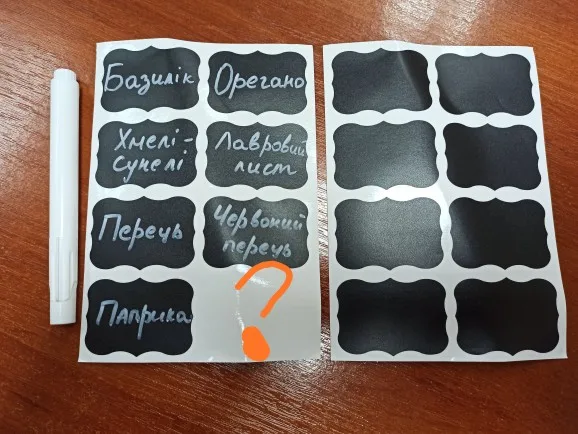 Базилік
Орегано
Хмелі-
сунелі
Лавровий
лист
Перець
Червоний
перець
Паприка
?